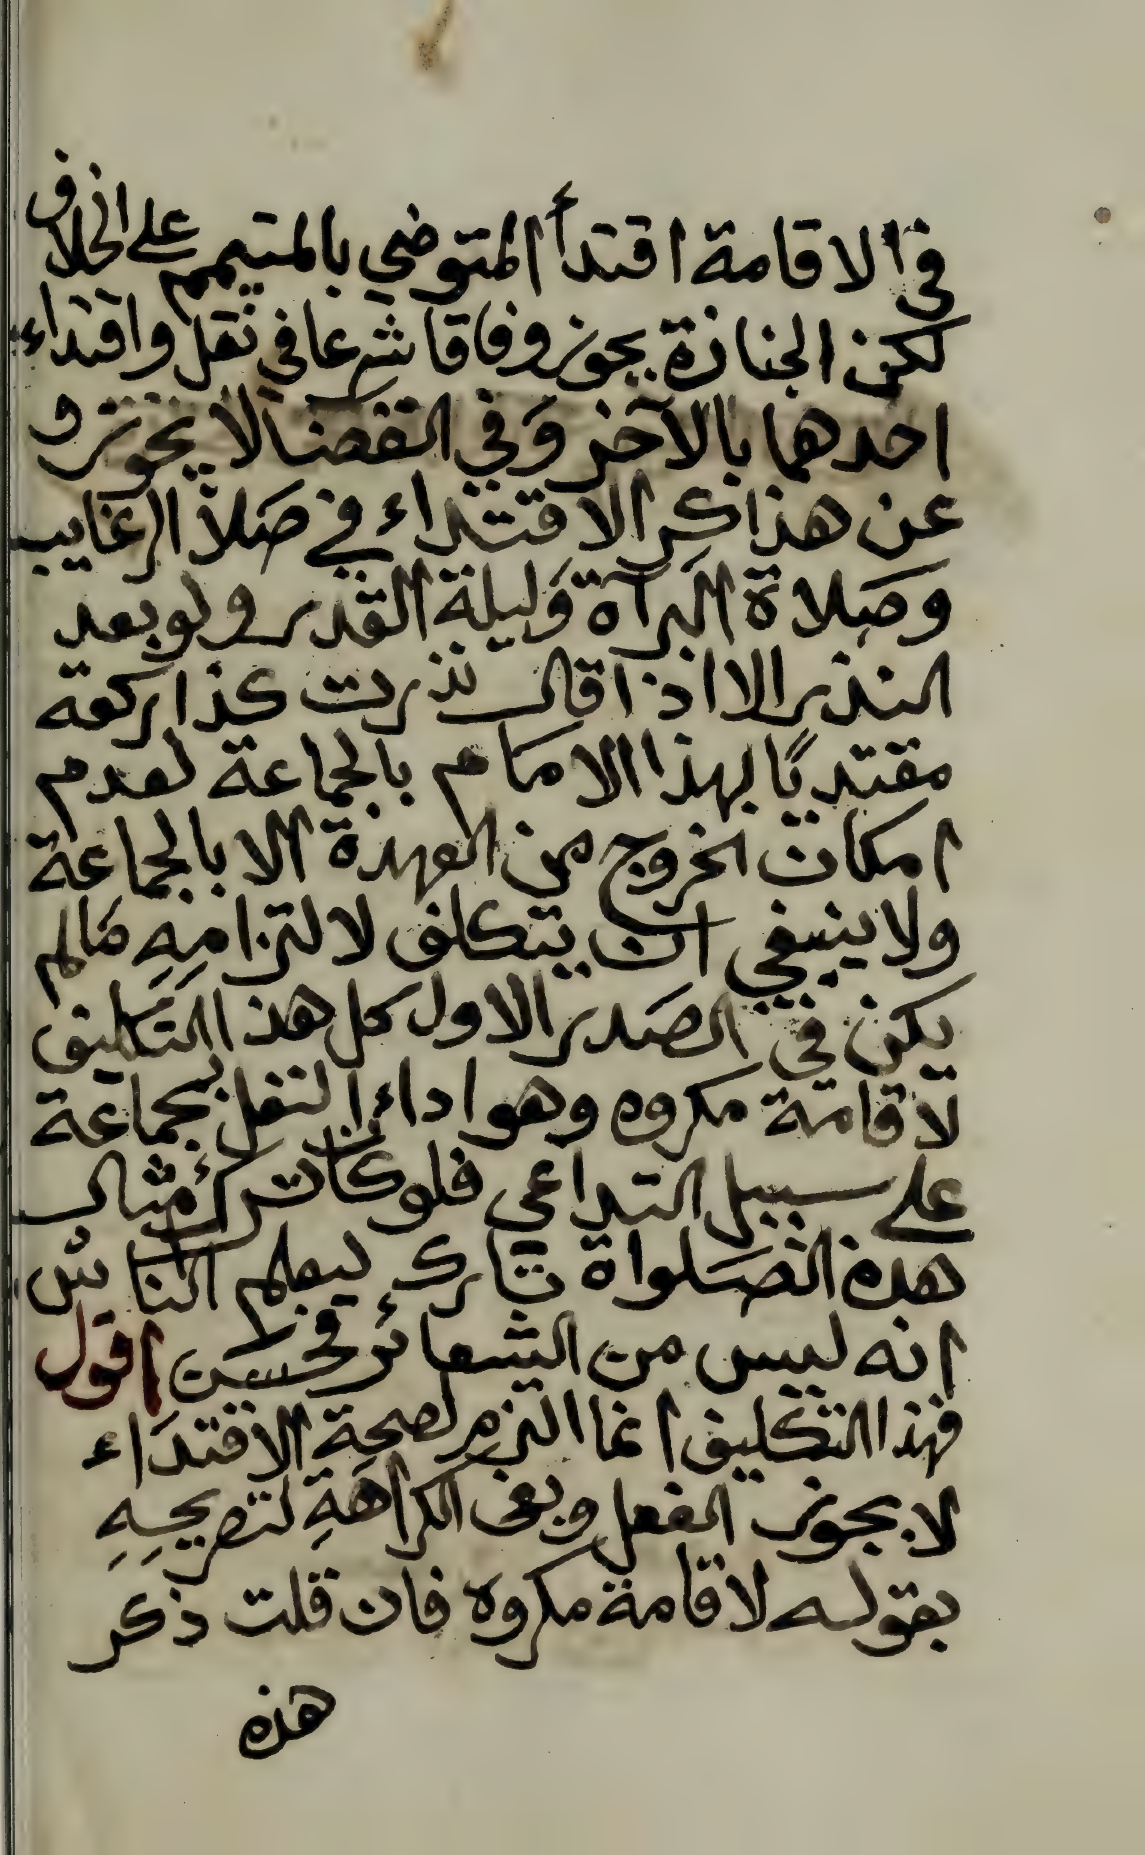 في الاقامة اقتدأ المتوضي بالمتيمم على الخلاف
لكن الجنازة يجوز وفاقا شرعا في نفل واقتداء
احدهما بالآخر وَفي القضا لا يجوز و
عن هذا كره الاقتداء في صَلاة الرغايب
وصَلاة البرآة وَليلة القدر ولو بعد
النذر الا اذا قال نذرت كذا ركعة
مقتديًا بهذا الامَام بالجماعة لعدم
امكان الخروج من العهدة الا بالجماعة
ولا ينبغي ان يتكلف لالتزامِهِ مَالم
يكن في الصَدر الاول كل هذ التكليف
لاقامة مكروه وهو اداء النفل بجماعة
على سبيل التداعي فلو كان ترك أمثال
هذه الصَلواة تارك ليعلم الناس
انه ليس من الشعائر فحسن اقول
فهذا التكليف انما التزم لصحة الاقتدَاء
لا بجوز الفعل وبقى الكراهةِ لتصريحِهِ
بقوله لاقامة مكروه فان قلت ذكر
هذه